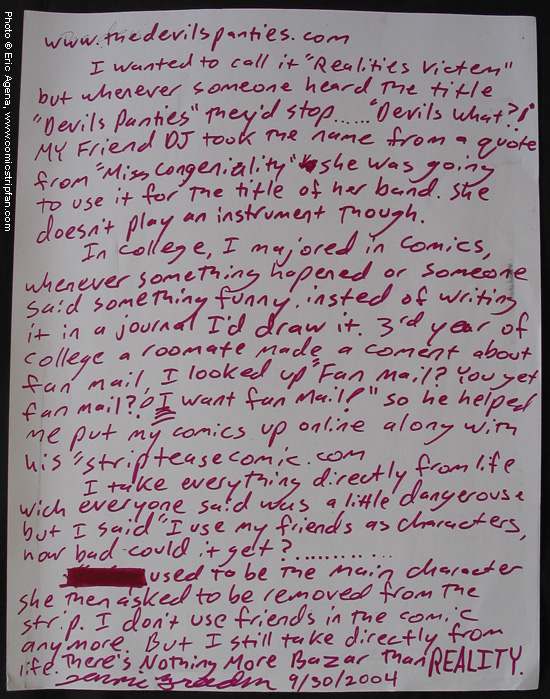 Photo © Eric Agena, www.comicstripfan.com
www.thedevilspanties.com
I wanted to call it "Realities Victem"
but whenever someone heard the title
"Devils Panties" they'd stop...... "Devils what?!"
MY Friend DJ took the name from a quote
from "Miss Congeniality" she was going
to use it for the title of her band. she
doesn't play an instrument though.
In college, I majored in comics,
whenever something hapened or someone
said something funny, insted of writing
it in a journal I'd draw it. 3rd year of
college a roomate made a coment about
fan mail, I looked up "Fan Mail? You get
fan mail?? I want fan mail!" so he helped
me put my comics up online along with
his "stripteasecomic.com
I take everything directly from life
wich everyone said was a little dangerouse
but I said "I use my friends as characters,
how bad could it get?............
used to be the main character
she then asked to be removed from the
strip. I don't use friends in the comic
any more. But I still take directly from
life. There's Nothing More Bazar than REALITY.
9/30/2004